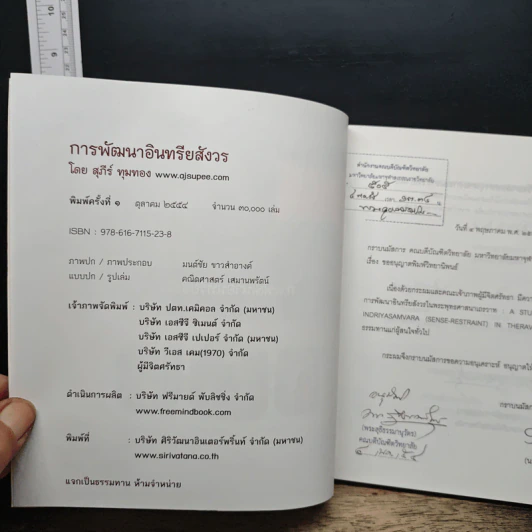 การพัฒนาอินทรียสังวร
โดย สุภีร์ ทุมทอง www.ajsupee.com
พิมพ์ครั้งที่ ๑ ตุลาคม ๒๕๕๔ จำนวน ๓๐,๐๐๐ เล่ม
ISBN : 978-616-7115-23-8
ภาพปก / ภาพประกอบ มนต์ชัย ขาวสำอางค์
แบบปก / รูปเล่ม คณิตศาสตร์ เสมานพรัตน์
เจ้าภาพจัดพิมพ์ : บริษัท ปตท.เคมิคอล จำกัด (มหาชน)
บริษัท เอสซีจี ซิเมนต์ จำกัด
บริษัท เอสซีจี เปเปอร์ จำกัด (มหาชน)
บริษัท วีเอส เคม(1970) จำกัด
ผู้มีจิตศรัทธา
ดำเนินการผลิต : บริษัท ฟรีมายด์ พับลิชชิ่ง จำกัด
www.freemindbook.com
พิมพ์ที่ : บริษัท ศิริวัฒนาอินเตอร์พริ้นท์ จำกัด (มหาชน)
www.sirivatana.co.th
แจกเป็นธรรมทาน ห้ามจำหน่าย
สำนักงานคณบดีบัณฑิตวิทยาลัย
มหาวิทยาลัยมหาจุฬาลงกรณราชวิทยาลัย
วันที่ ๔ พฤษภาคม พ.ศ.
กราบนมัสการ คณบดีบัณฑิตวิทยาลัย
เรื่อง ขออนุญาตพิมพ์วิทยานิพนธ์
เนื่องด้วยกระผมและคณะเจ้าภาพผู้มีจิตศรัทธา
การพัฒนาอินทรียสังวรในพระพุทธศาสนาเถรวาท : A
INDRIYASAMVARA (SENSE-RESTRAINT) IN
ธรรมทานแก่ผู้สนใจทั่วไป
กระผมจึงกราบนมัสการขอความอนุเคราะห์
(พระสุธีธรรมานุวัตร)
คณบดีบัณฑิตวิทยาลัย
9
10